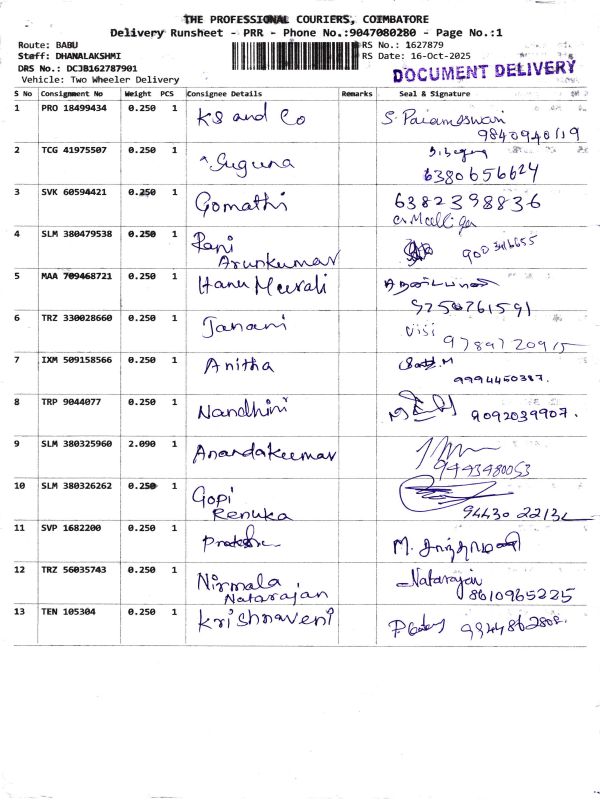 THE PROFESSIONAL COURIERS, COIMBATORE
Delivery Runsheet - PRR - Phone No.:9047080280 - Page No.:1
Route: BABU
Staff: DHANALAKSHMI
DRS No.: DCJB162787901
Vehicle: Two Wheeler Delivery
RS No.: 1627879
RS Date: 16-Oct-2025
DOCUMENT DELIVERY
S No Consignment No Weight PCS Consignee Details Remarks Seal & Signature
1 PRO 18499434 0.250 1 KS and Co S. Parameswari
9840940119
2 TCG 41975507 0.250 1 Suguna
6380656624
3 SVK 60594421 0.250 1 Gomathi 6382398836
4 SLM 380479538 0.250 1 Rani
Arunkumar
5 MAA 709468721 0.250 1 Hanu Meerali
9750761591
6 TRZ 330028660 0.250 1 Janani Visi
9789720915
7 IXM 509158566 0.250 1 Anitha
9994450387.
8 TRP 9044077 0.250 1 Nandhini 9092039907.
9 SLM 380325960 2.090 1 Anandakumar
9443980053
10 SLM 380326262 0.250 1 Gopi
Renuka
94430 22132
11 SVP 1682200 0.250 1 M.
12 TRZ 56035743 0.250 1 Nirmala
Natarajan
Natarajan
8610965225
13 TEN 105304 0.250 1 Krishnaveni 9944862808.